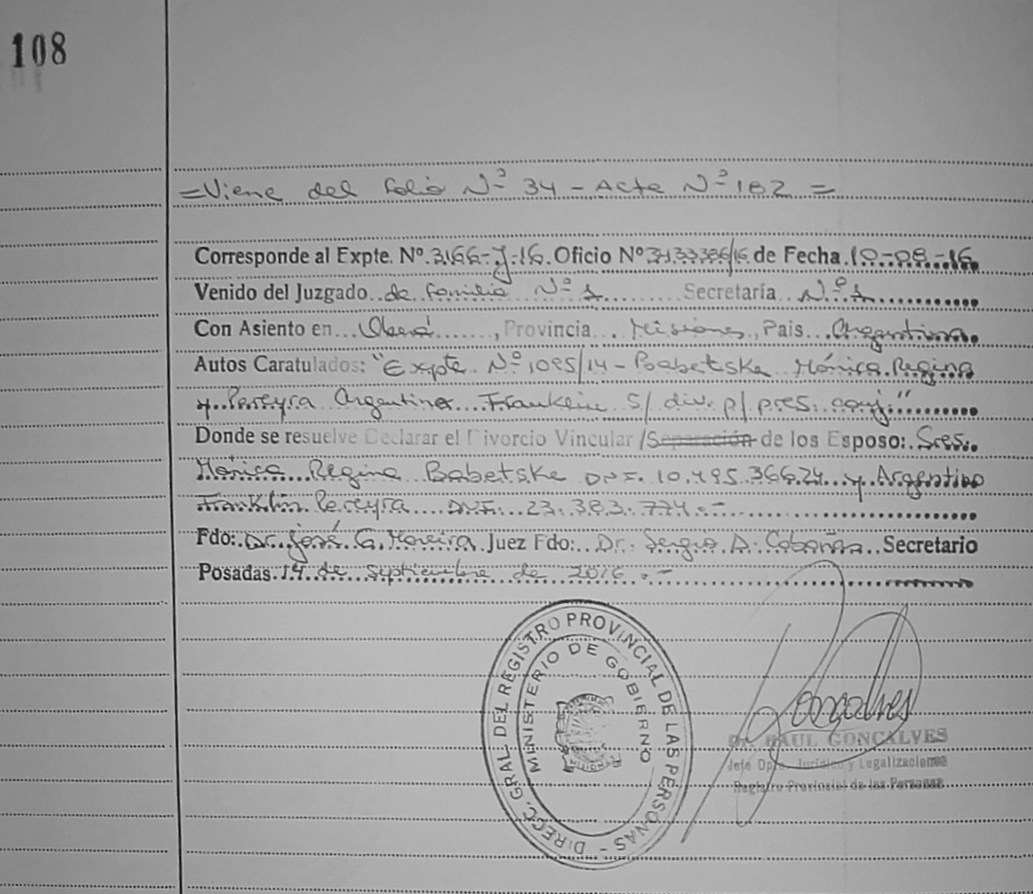 108
=Viene del folio Nº 34 - Acta Nº 182 =
Corresponde al Expte. Nº 3166-J-16. Oficio Nº de Fecha 10-08-16
Venido del Juzgado de familia Nº 1 Secretaría Nº 1
Con Asiento en Oberá, Provincia Misiones, Pais Argentina
Autos Caratulados: "Expte. Nº 1085/14 - Babetske Mónica Regina
y Pereyra Argentino Franklin s/ div. p/ pres. conj."
Donde se resuelve Declarar el Divorcio Vincular /Separación de los Esposo: Sres.
Mónica Regina Babetske DNI. y Argentino
Franklin Pereyra DNI. 23.383.774.-
Fdo: Dr. José G. Moreira Juez Fdo: Dr. Sergio A. Secretario
Posadas. 14 de septiembre de 2016.-
DIRECC. GRAL DEL REGISTRO PROVINCIAL DE LAS PERSONAS -
MINISTERIO DE GOBIERNO
Goncalves
Dr. RAUL GONCALVES
Jefe Dpto. Jurídico y Legalizaciones
Registro Provincial de las Personas